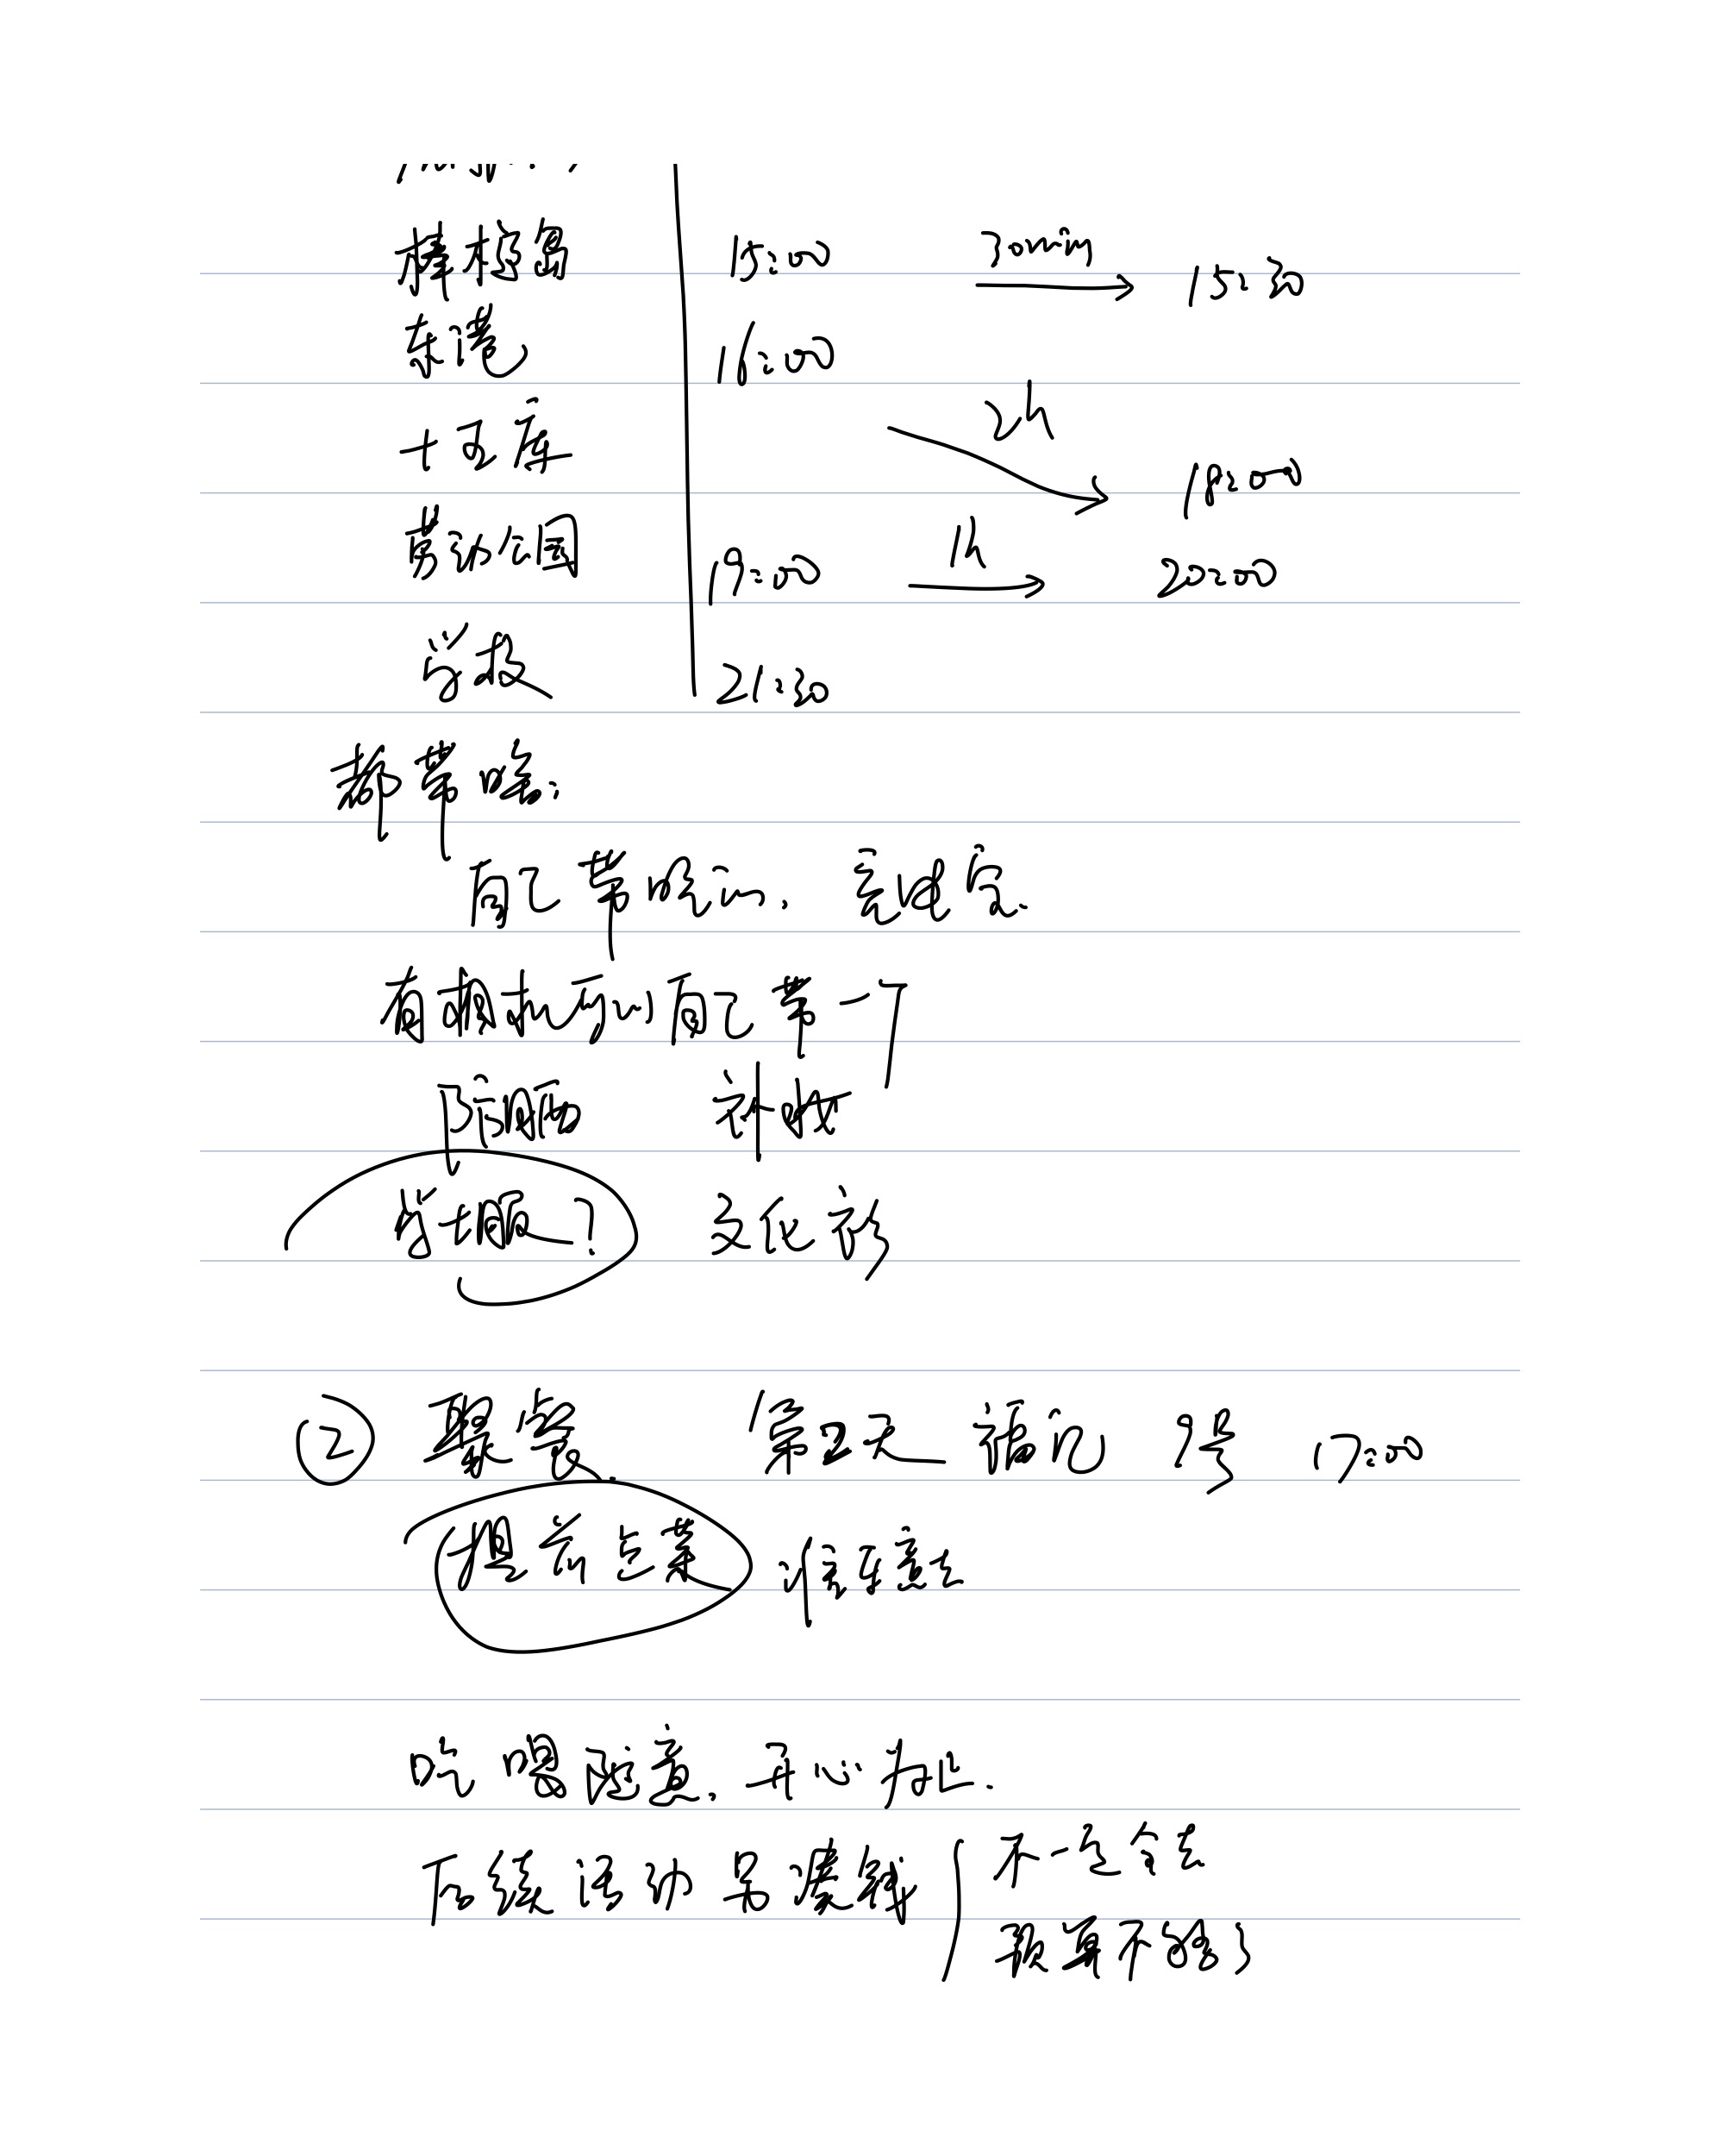 棒棰岛 15:00 30min 15:30
东港 16:00
十五库 2h 18:00
劳动公园 19:00 1h 20:00
学校 21:30
都带啥:
自己带吃的, 意见定.
有相机的自己带一下
防晒 油
支持服? 文化衫
② 聚餐 第2天 诸葛记 9号 17:00
提前点菜 谁在意点
吃喝随意, 开心为上.
后续活动另凑钱 不一定全去
预算不够了